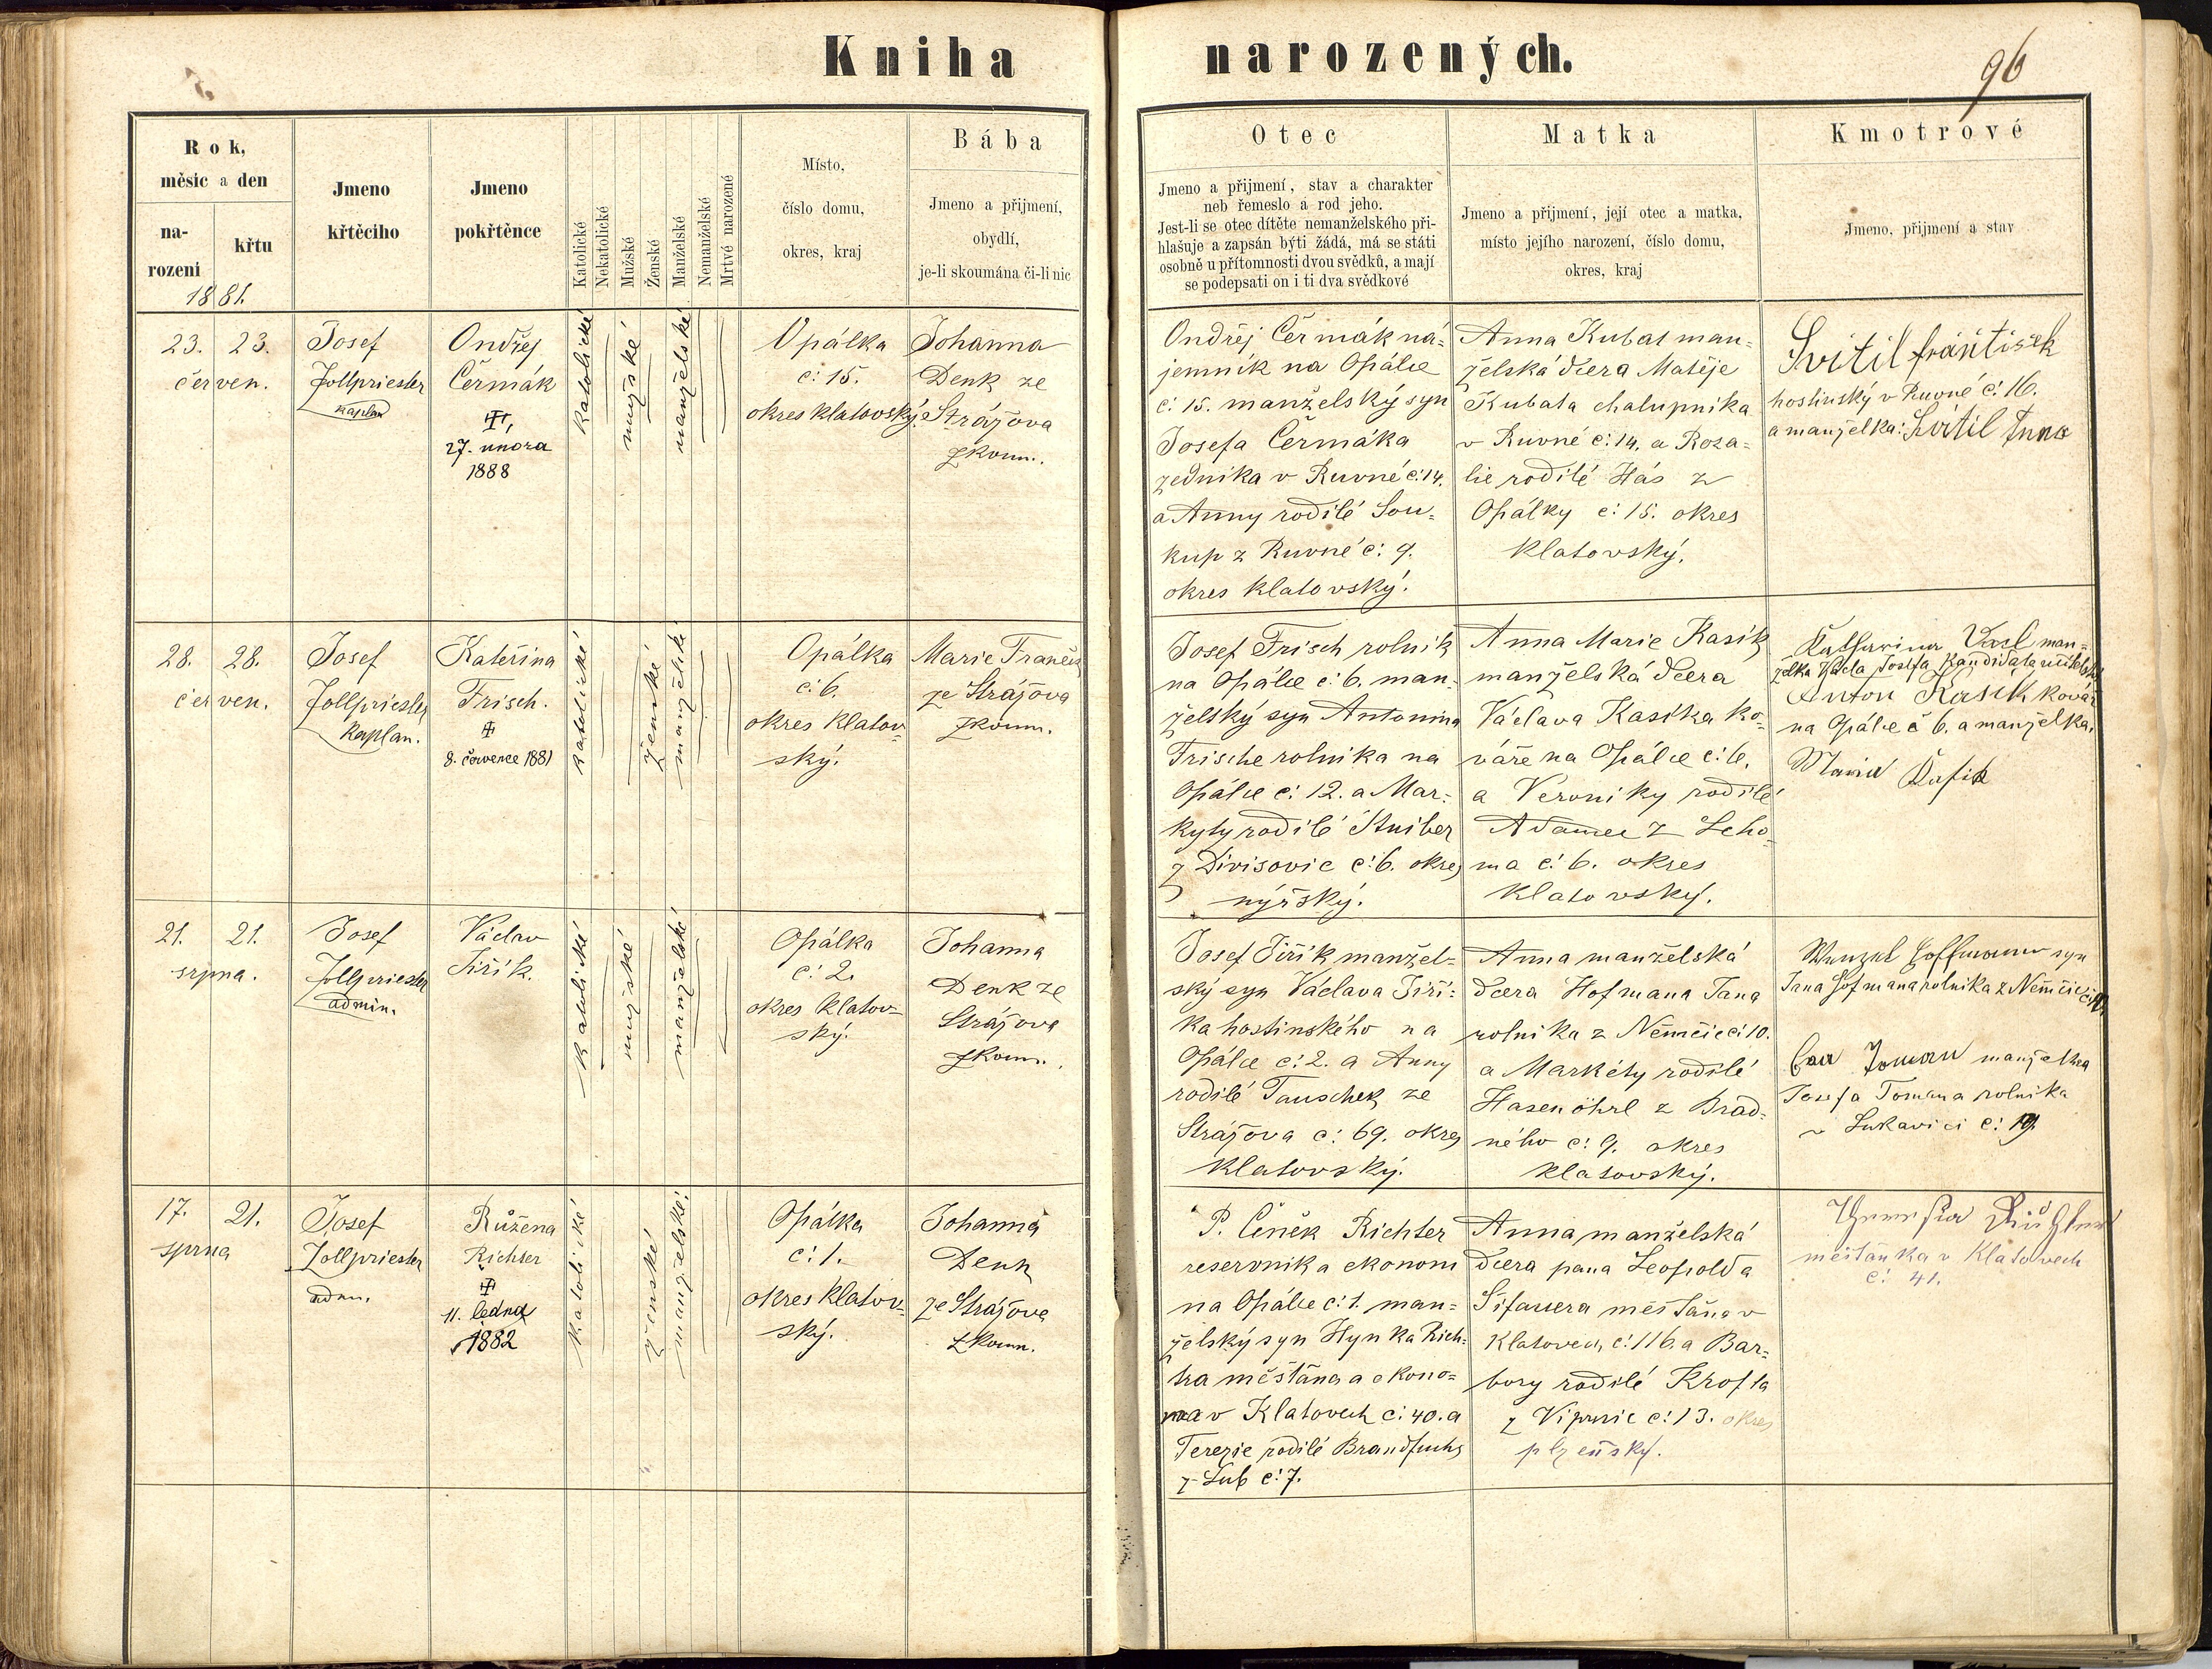 Kniha narozených.
96
Rok,
měsic a den
na-
rozeni
křtu
1881.
Jmeno
křtěcího
Jmeno
pokřtěnce
Katolické
Nekatolické
Mužské
Ženské
Manželské
Nemanželské
Mrtvé narozené
Místo,
číslo domu,
okres, kraj
Bába
Jmeno a přijmení,
obydlí,
je-li skoumána či-li nic
Otec
Jmeno a přijmení, stav a charakter
neb řemeslo a rod jeho.
Jest-li se otec dítěte nemanželského při-
hlašuje a zapsán býti žádá, má se státi
osobně u přítomnosti dvou svědků, a mají
se podepsati on i ti dva svědkové
Matka
Jmeno a přijmení, její otec a matka,
místo jejího narození, číslo domu,
okres, kraj
Kmotrové
Jmeno, přijmení a stav
23. 23.
červen.
Josef
Zollpriester
kaplan
Ondřej
Čermák
27. února
1888
Katolické
mužské
manželské
Opálka
č: 15.
okres klatovský.
Johanna
Denk ze
Strážova
zkoum.
Ondřej Čermák ná-
jemník na Opálce
č: 15. manželský syn
Josefa Čermáka
zedníka v Ruvné č: 14.
a Anny rodilé Sou-
kup z Ruvné č: 9.
okres klatovský.
Anna Kubat man-
želská dcera Matěje
Kubata chalupníka
v Ruvné č: 14. a Roza-
lie rodilé Hás z
Opálky č: 15. okres
klatovský.
Svitil František
hostinský v Ruvné č: 16.
a manželka: Svitil Anna
28. 28.
červen.
Josef
Zollpriester
kaplan.
Kateřina
Frisch.
8. července 1881
katolické
ženské
manželské
Opálka
č: 6.
okres klatov-
ský.
Marie Franěk
ze Strážova
zkoum.
Josef Frisch rolník
na Opálce č: 6. man-
želský syn Antonína
Frische rolníka na
Opálce č: 12. a Mar-
kyty rodilé Stuiber
z Divišovic č: 6. okres
nýrský.
Anna Marie Kasík
manželská dcera
Václava Kasíka ko-
váře na Opálce č: 6.
a Veroniky rodilé
Adamec z Leho-
ma č: 6. okres
klatovský.
Katharina man-
želka Josefa kandidata
Anton Kasik kovář
na Opálce č 6. a manželka,
Maria Kasik
21. 21.
srpna.
Josef
Zollpriester
admin.
Václav
Jiřík.
Katolické
mužské
manželské
Opálka
č: 2.
okres klatov-
ský.
Johanna
Denk ze
Strážova
zkoum.
Josef Jiřík manžel-
ský syn Václava Jiří-
ka hostinského na
Opálce č: 2. a Anny
rodilé Tauschek ze
Strážova č: 69. okres
klatovský.
Anna manželská
dcera Hofmana Jana
rolníka z Němčic č: 10.
a Markéty rodilé
Hasenöhrl z Brad-
ného č: 9. okres
klatovský.
Wenzel Hoffmann syn
Jana Hofmana rolníka z Němčic
Toman manželka
Josefa Tomana rolníka
v Lukavici č: 19.
17. 21.
srpna
Josef
Zollpriester
adm.
Růžena
Richter
11. ledna
1882
Katolické
ženské
manželské.
Opálka
č: 1.
okres klatov-
ský.
Johanna
Denk
ze Strážova
zkoum.
P. Čeněk Richter
reservník a ekonom
na Opálce č: 1. man-
želský syn Hynka Rich-
tra měšťána a ekono-
ma v Klatovech č: 40. a
Terezie rodilé Brandfuchs
z Lub č: 7.
Anna manželská
dcera pana Leopolda
měšťána v
Klatovech, č: 116. a Bar-
bory rodilé Krofta
z č: 13. okres
plzeňský.
Theresia Richter
měšťanka v Klatovech
č: 41.